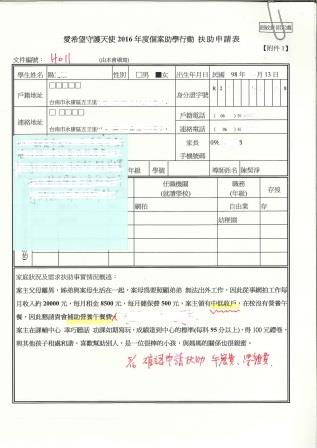 愛希望守護天使 2016 年度個案助學行動 扶助申請表
【附件 1】
文件編號： H011 (由本會填寫)
學生姓名 性別 □男 ■女 出生年月日 民國 98 年 月 13 日
戶籍地址 台南市永康區五王里 身分證字號 R 2
戶籍電話 ( 06 )
連絡地址 台南市永康區五王里 連絡電話 ( 06 )
家長 手機號碼 09
年級 學號 導師姓名 陳
任職機關 (就讀學校) 職務 (年級) 存歿
網拍 自由業 存
幼稚園
家庭狀況及需求扶助事實情況概述：
案主父母離異，姊弟與案母生活在一起，案母為要照顧弟弟 無法出外工作，因此從事網拍工作每
月收入約 20000 元，每月租金 8500 元，每月健保費 500 元，案主領有中低收戶，在校沒有營養午
餐，因此懇請貴會補助營養午餐費
案主在課輔中心 乖巧聽話 功課如期寫完，成績達到中心的標準(每科 95 分以上)，得 100 元禮卷，
與其他孩子相處和諧，喜歡幫助別人，是一位很棒的小孩，與媽媽的關係也很親密。
確認申請扶助 午餐費、學雜費